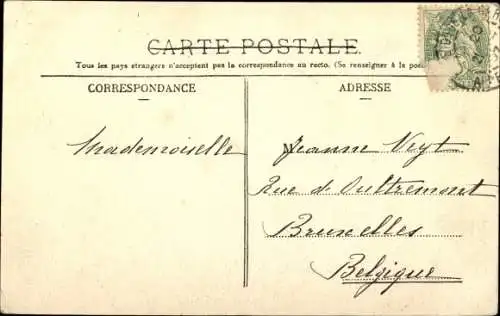 CARTE POSTALE
Tous les pays étrangers n'acceptent pas la correspondance au recto. (Se renseigner à la
CORRESPONDANCE
ADRESSE
Mademoiselle
Jeanne
Rue d'Oultremont
Bruxelles
Belgique